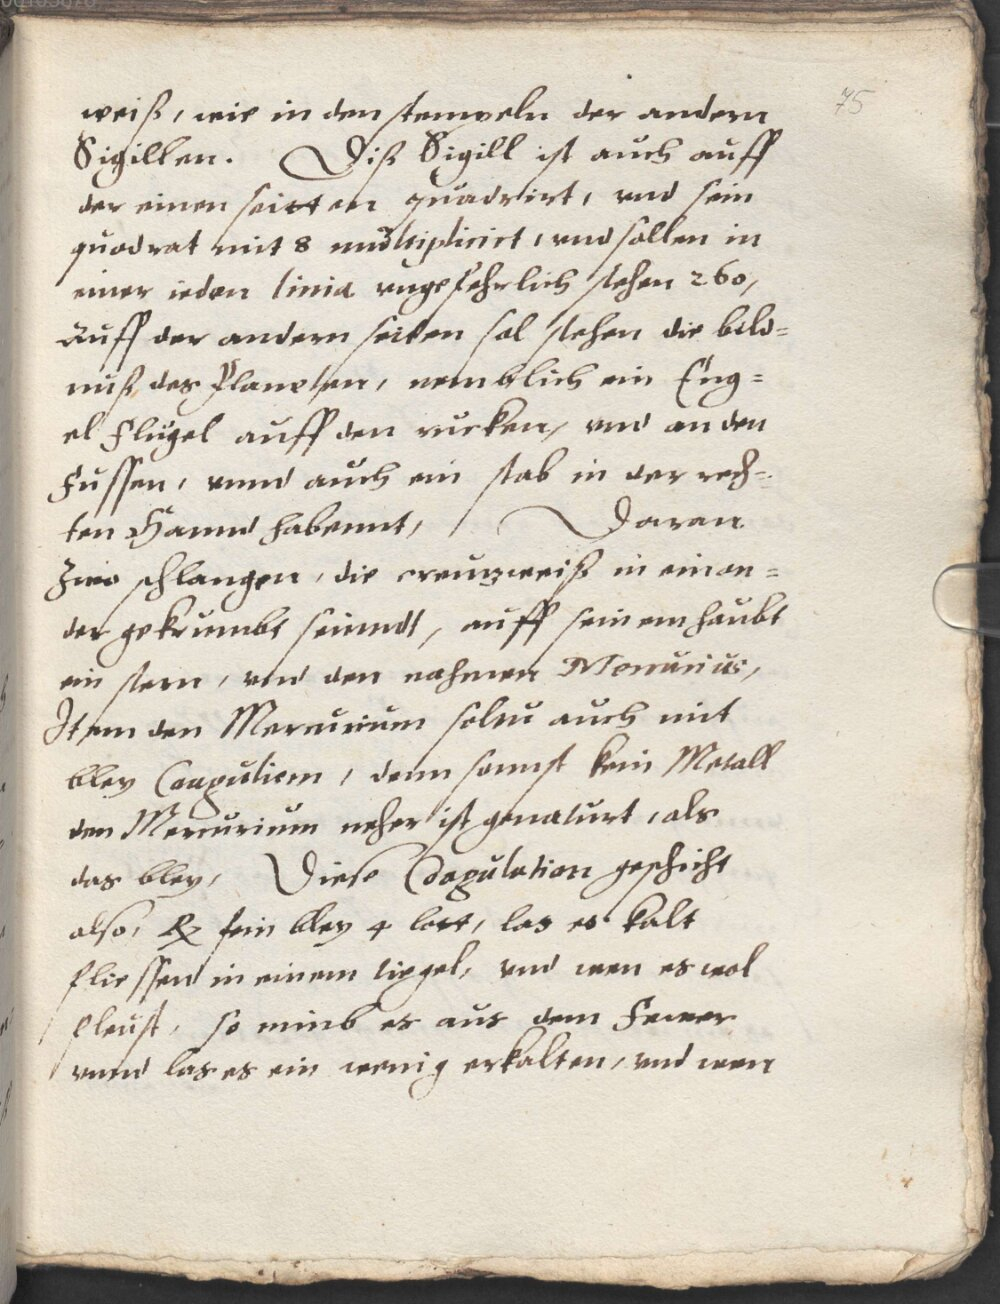 75
weiß, wie in den stempeln der andern
Sigillen. Diß Sigill ist auch auff
der einen seitten quadrirt, vnd sein
quadrat mit 8 multiplicirt, vnd sollen in
einer ieden linia vngefehrlich stehen 260,
Auff der andern seiten sol stehen die bild=
nuß des Planeten, nemblich ein Eng=
el Flügel auff den rucken, vnd an den
Fussen, vnnd auch ein stab in der rech=
ten Hannd habennt, Daran
Zwo schlangen, die creutzweiß in einan=
der gekrumbt seinndt, auff seinem haubt
ein stern, vnd den nahmen Mercurius,
Item den Mercurium soltu auch mit
bley Coagulirn, denn sonnst kein Metall
den Mercurium neher ist genaturt, als
das bley, Diese Coagulation geschicht
also, ℞ fein bley 4 lott, las es kalt
fliessen in einem tiegel, vnd wen es wol
fleust, so nimb es aus dem Feuer
vnnd las es ein wenig erkalten, vnd wen